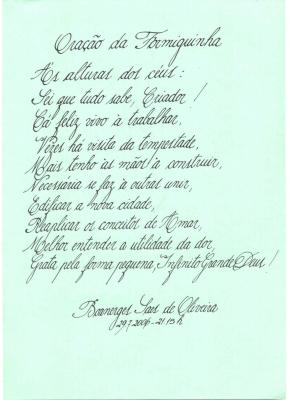 Oração da Formiguinha
Às alturas dos céus:
Sei que tudo sabe, Criador!
Cá feliz vivo à trabalhar,
Vezes há visita da tempestade,
Mais tenho às mãos à construir,
Necessária se faz à outras unir,
Edificar a nova cidade,
Reaplicar os conceitos de Amar,
Melhor entender a utilidade da dor,
Grata pela forma pequena, Infinito Grande Deus!
Boanerges Saes de Oliveira
29.7.2006 - 21:15 h.